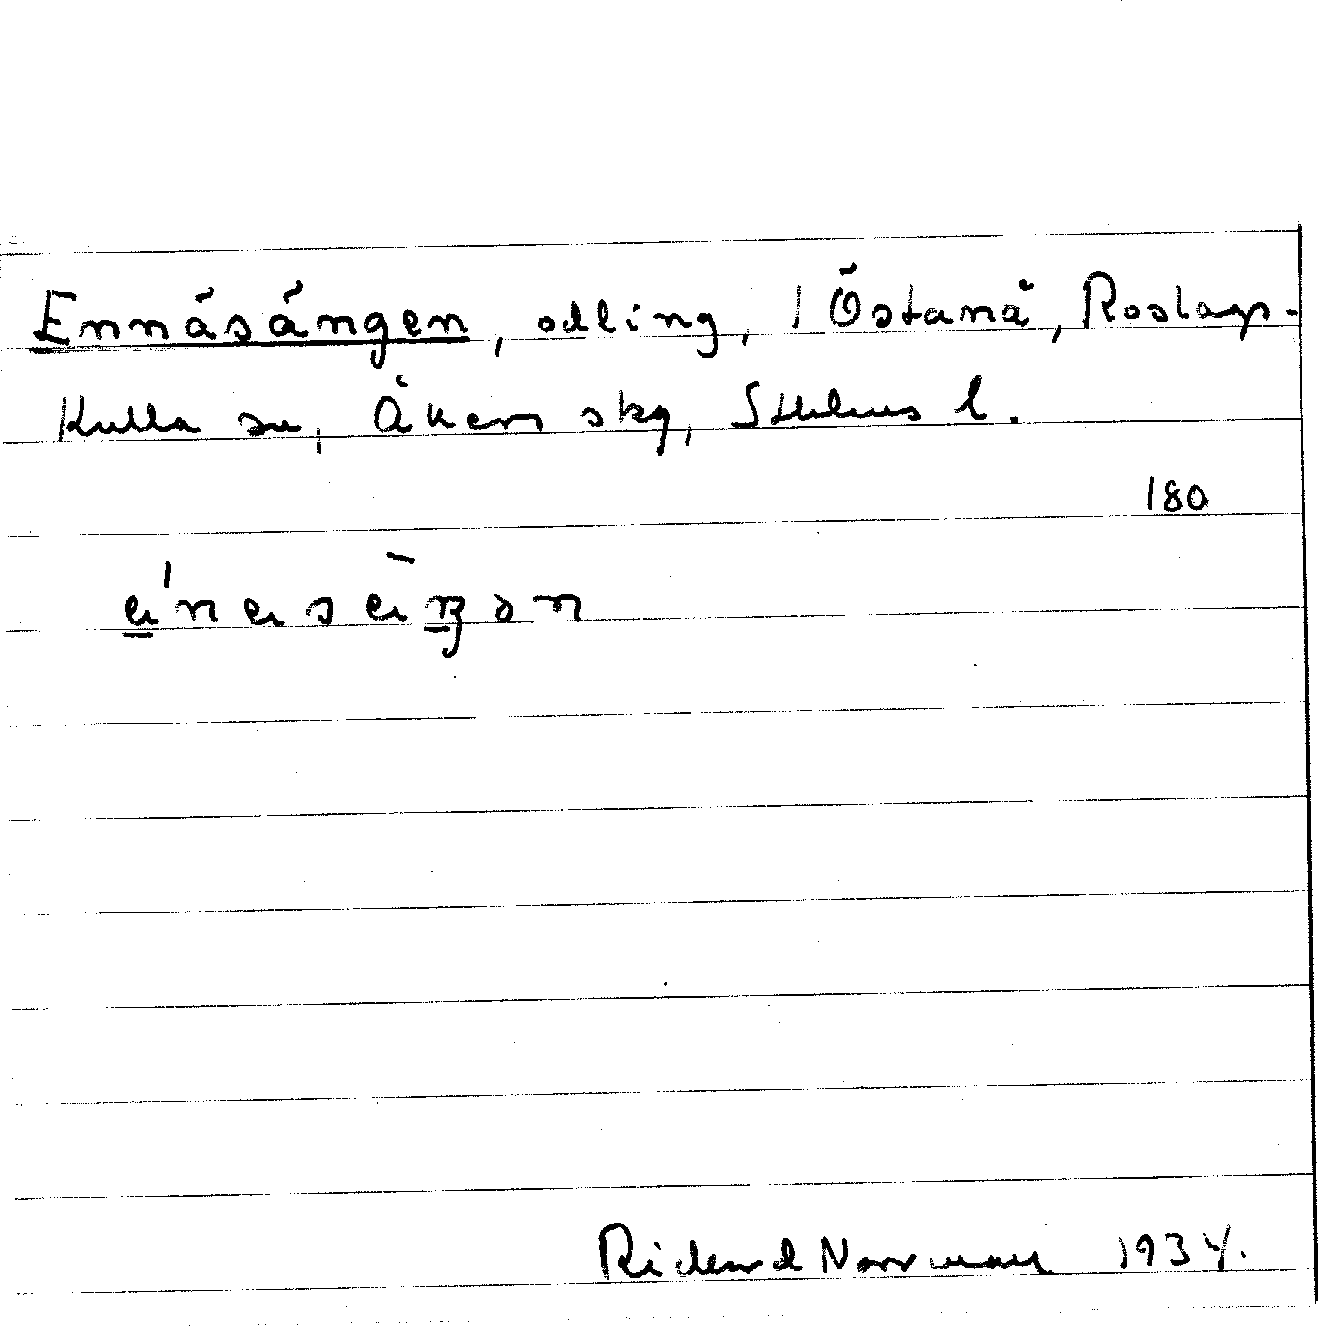 Ennäsängen, odling, i Östanå, Roslags-
Kulla sn, Åkers skg, Sthlms l.
180
Rickard Norrman 1934.